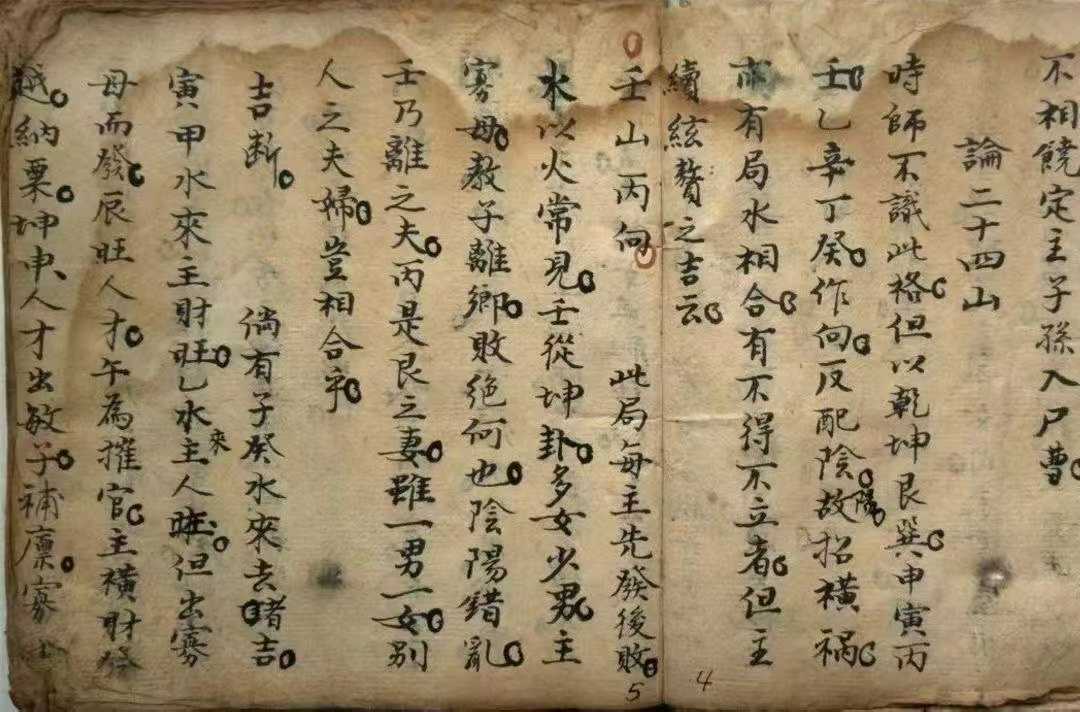 不相饒定主子孫入尸曹
論二十四山
時師不識此格但以乾坤艮巽申寅丙
壬乙辛丁癸作向反配陰陽故招橫禍
有局水相合有不得不立者但主
續絃贅之吉云
4
壬山丙向 此局每主先發後敗
水以火常見壬從坤卦多女少男主
寡母教子離鄉敗絕何也陰陽錯亂
壬乃離之夫丙是艮之妻雖一男一女別
人之夫婦豈相合乎
吉斷 倘有子癸水來去者吉
寅甲水來主財旺乙水來主人旺但出寡
母而發辰旺人才午為摧官主橫財發
越納粟坤申人才出敏子補廩寡
5